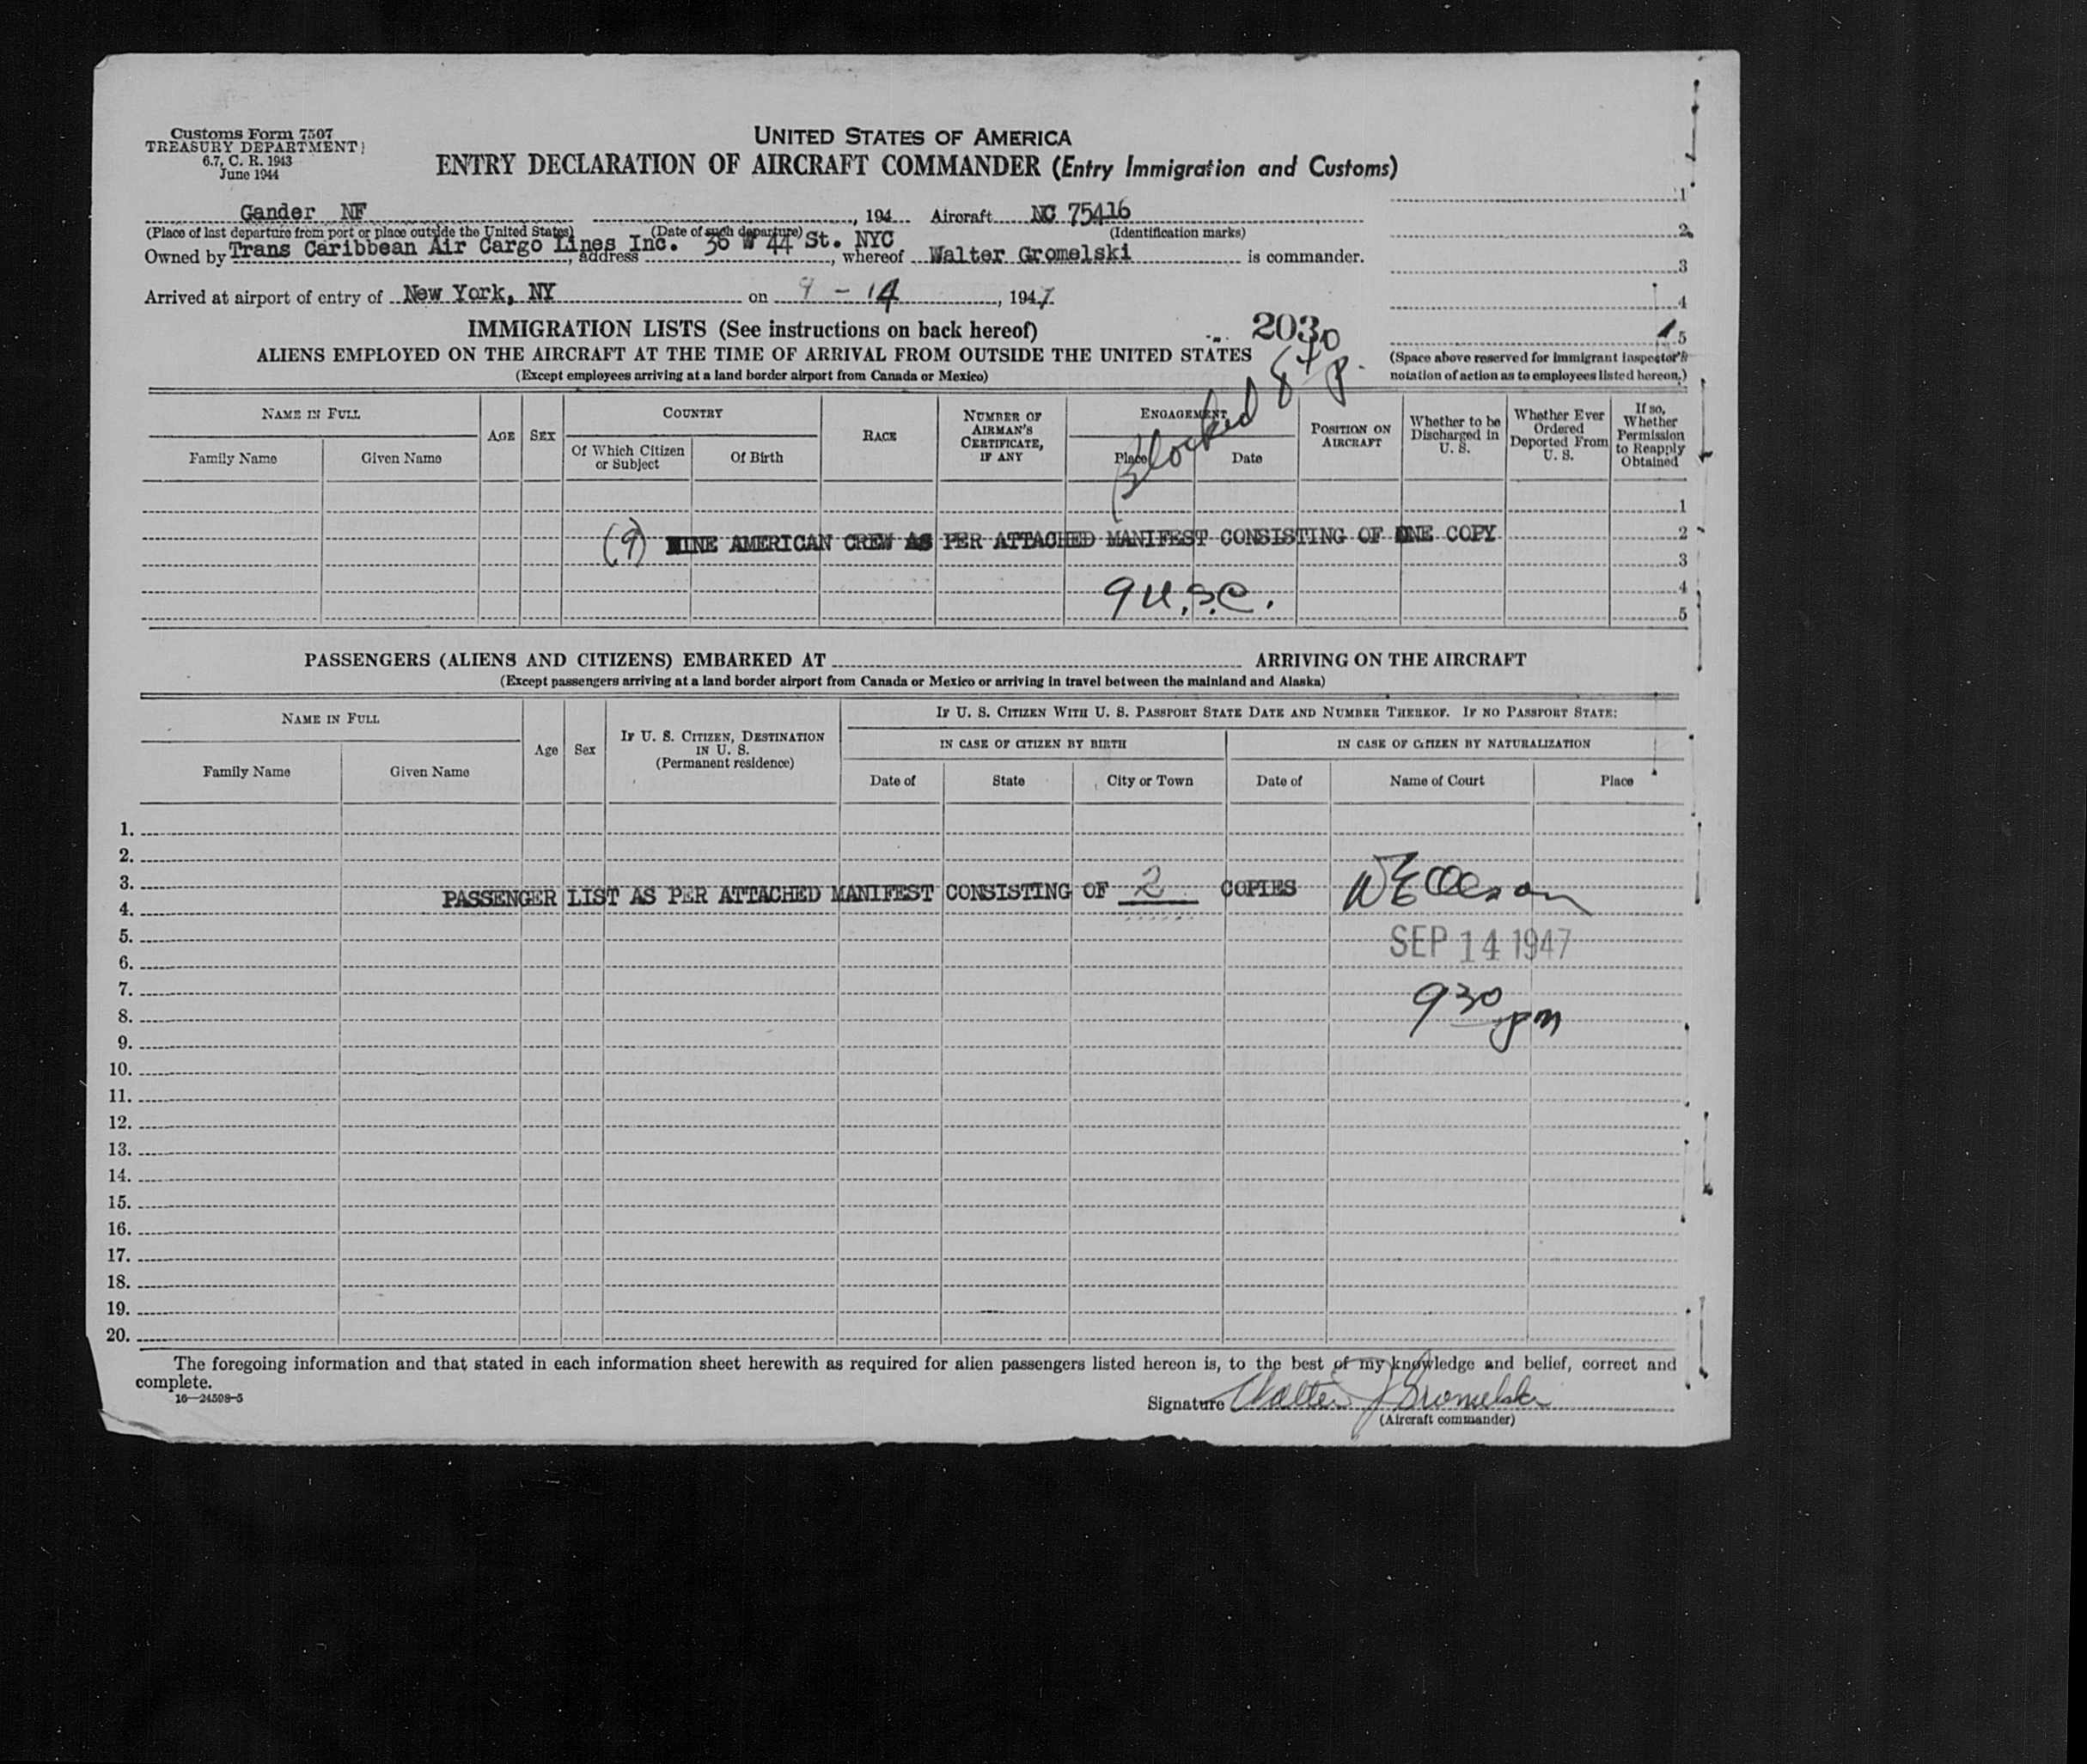 Customs Form 7507
TREASURY DEPARTMENT
6.7, C. R. 1943
June 1944
UNITED STATES OF AMERICA
ENTRY DECLARATION OF AIRCRAFT COMMANDER (Entry Immigration and Customs)
Gander NF , 194 Aircraft NC 75416
(Place of last departure from port or place outside the United States) (Date of such departure) (Identification marks)
Owned by Trans Caribbean Air Cargo Lines Inc. , address 36 W 44 St. NYC , whereof Walter Gromelski is commander.
Arrived at airport of entry of New York, NY on 9 - 14 , 1947
1
2
3
4
5
(Space above reserved for immigrant inspector's notation of action as to employees listed hereon.)
IMMIGRATION LISTS (See instructions on back hereof)
2030
ALIENS EMPLOYED ON THE AIRCRAFT AT THE TIME OF ARRIVAL FROM OUTSIDE THE UNITED STATES
(Except employees arriving at a land border airport from Canada or Mexico)
Blocked
NAME IN FULL
Family Name
Given Name
AGE
SEX
COUNTRY
Of Which Citizen or Subject
Of Birth
RACE
NUMBER OF AIRMAN'S CERTIFICATE, IF ANY
ENGAGEMENT
Place
Date
POSITION ON AIRCRAFT
Whether to be Discharged in U. S.
Whether Ever Ordered Deported From U. S.
If so, Whether Permission to Reapply Obtained
1
(9) NINE AMERICAN CREW AS PER ATTACHED MANIFEST CONSISTING OF ONE COPY 2
3
9 U.S.C. 4
5
PASSENGERS (ALIENS AND CITIZENS) EMBARKED AT ARRIVING ON THE AIRCRAFT
(Except passengers arriving at a land border airport from Canada or Mexico or arriving in travel between the mainland and Alaska)
NAME IN FULL
Family Name
Given Name
Age
Sex
IF U. S. CITIZEN, DESTINATION IN U. S.
(Permanent residence)
IF U. S. CITIZEN WITH U. S. PASSPORT STATE DATE AND NUMBER THEREOF. IF NO PASSPORT STATE:
IN CASE OF CITIZEN BY BIRTH
IN CASE OF CITIZEN BY NATURALIZATION
Date of
State
City or Town
Date of
Name of Court
Place
1.
2.
3.
PASSENGER LIST AS PER ATTACHED MANIFEST CONSISTING OF 2 COPIES
4.
5.
SEP 14 1947
6.
7.
930 pm
8.
9.
10.
11.
12.
13.
14.
15.
16.
17.
18.
19.
20.
The foregoing information and that stated in each information sheet herewith as required for alien passengers listed hereon is, to the best of my knowledge and belief, correct and
complete.
16—24598-5
Signature Walter J Gromelski
(Aircraft commander)